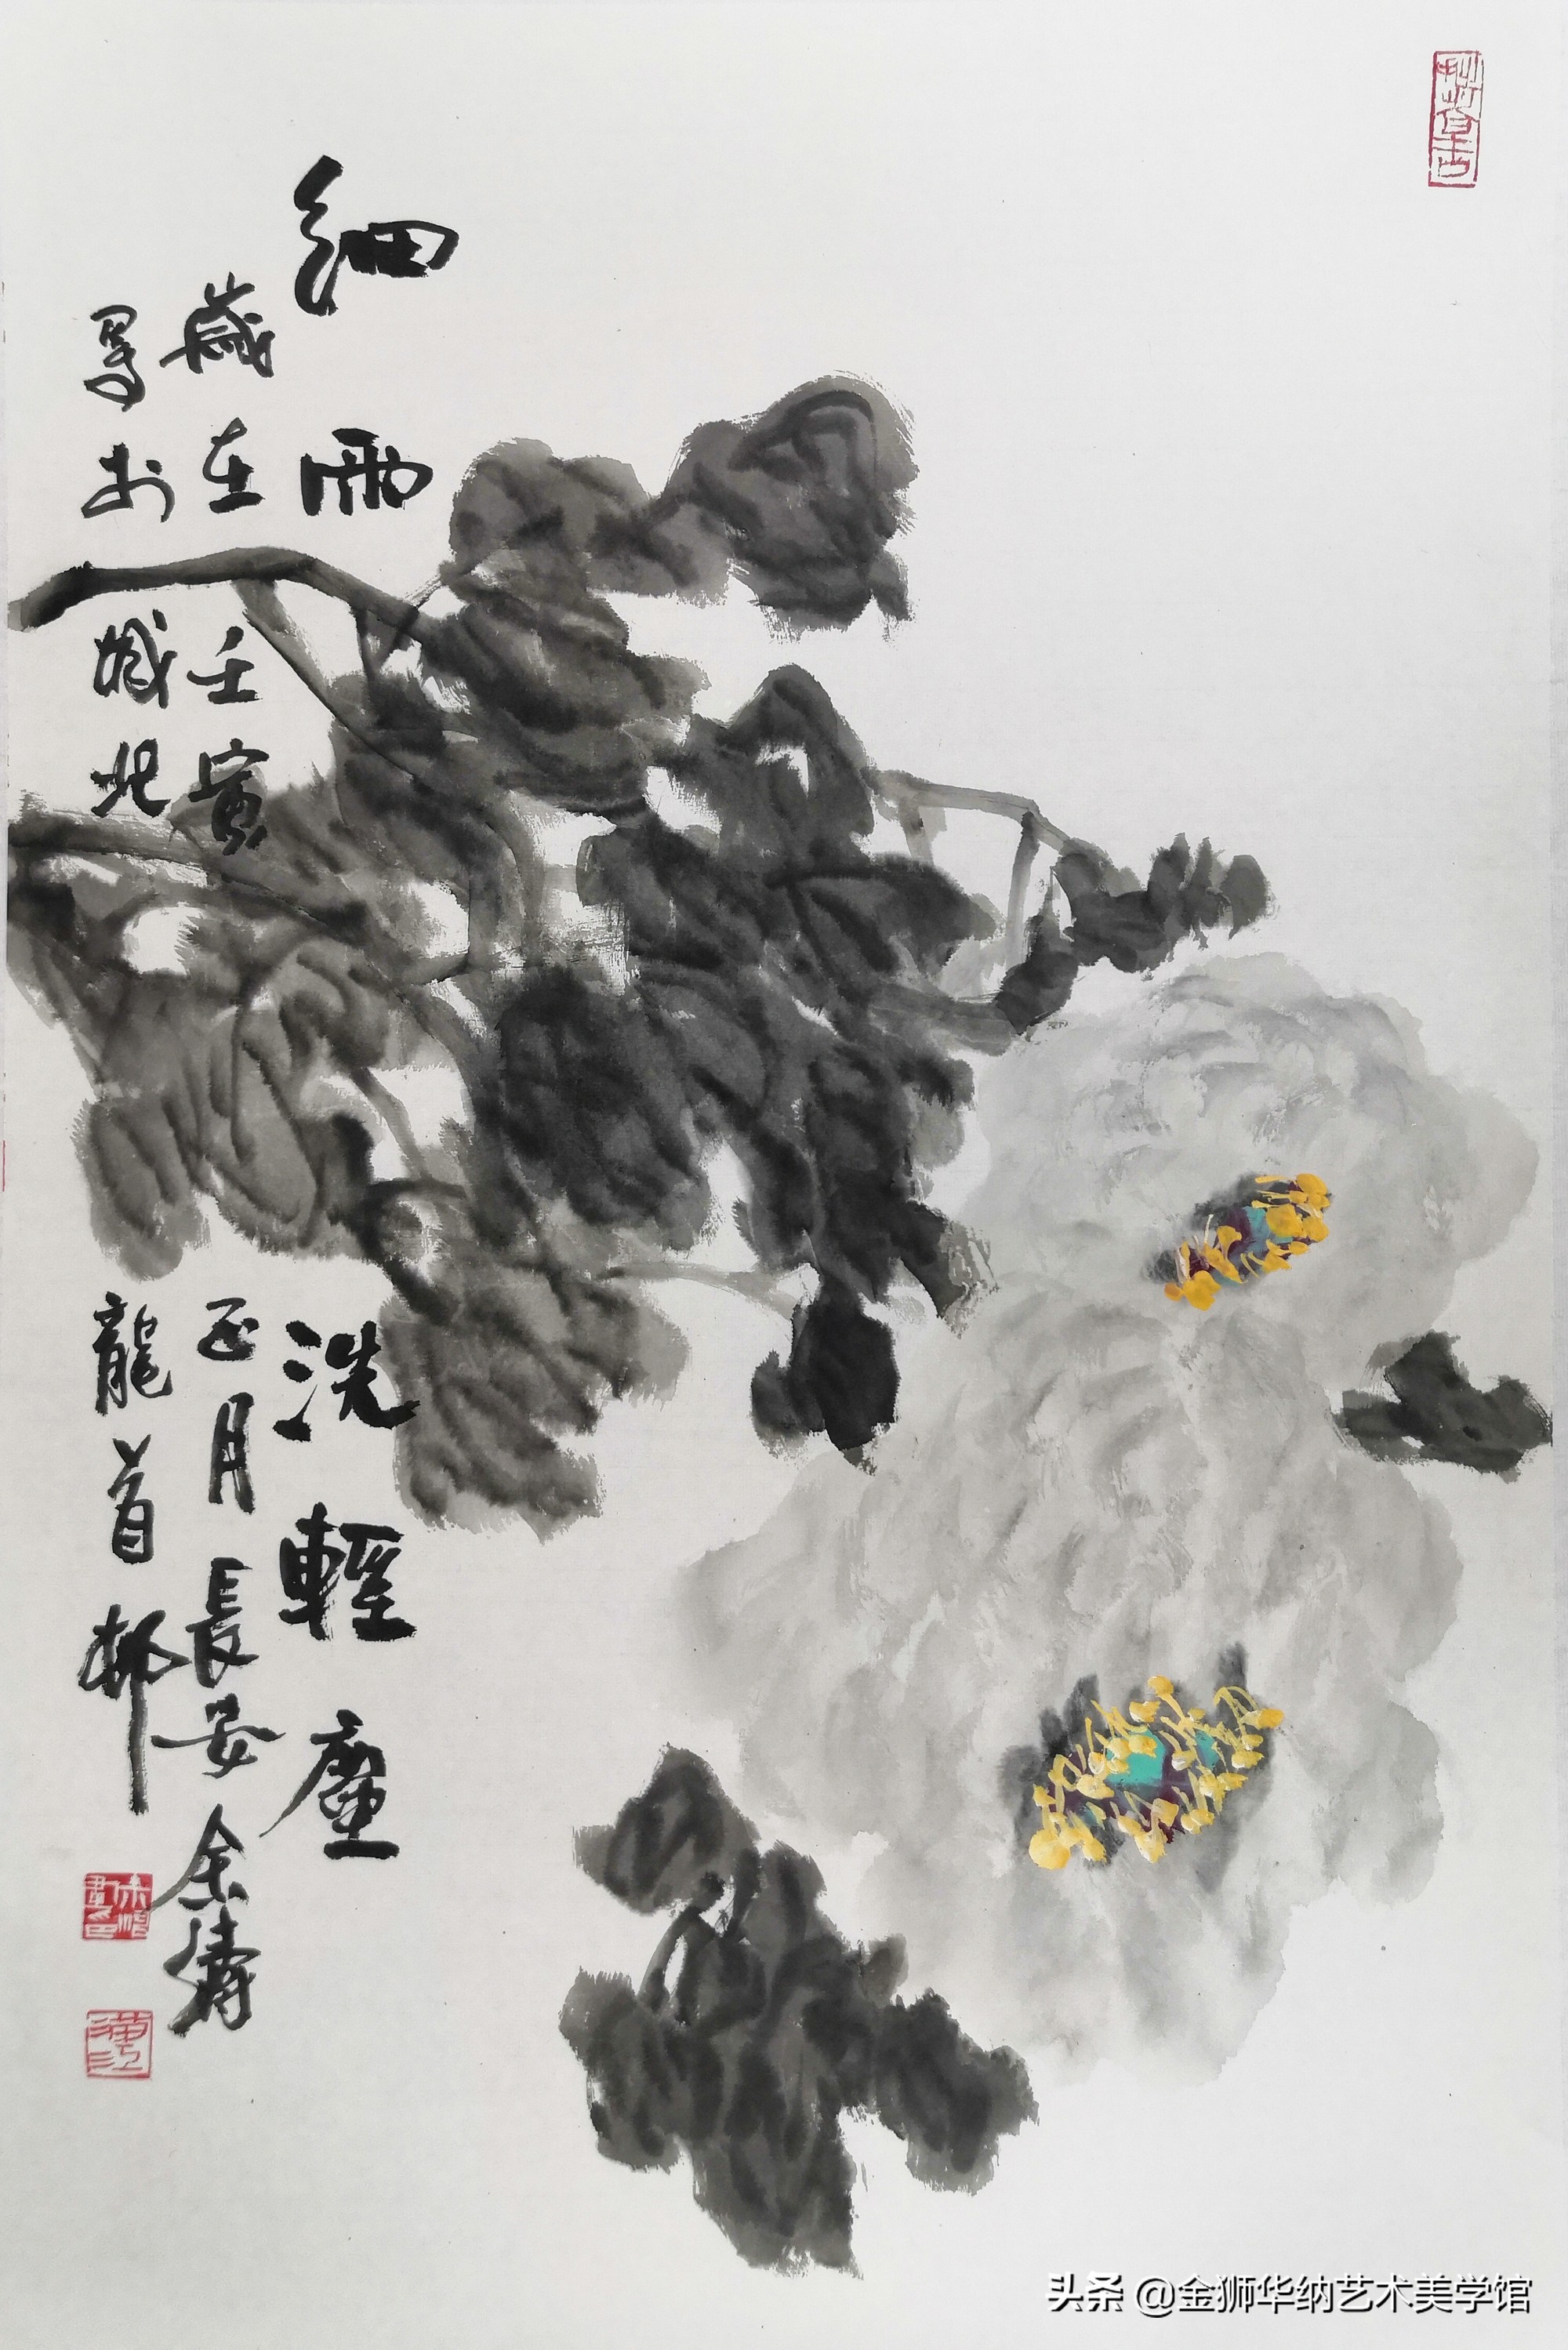 細雨洗輕塵
歲在壬寅正月長安余濤
寫於城北龍首邨
头条 @金狮华纳艺术美学馆